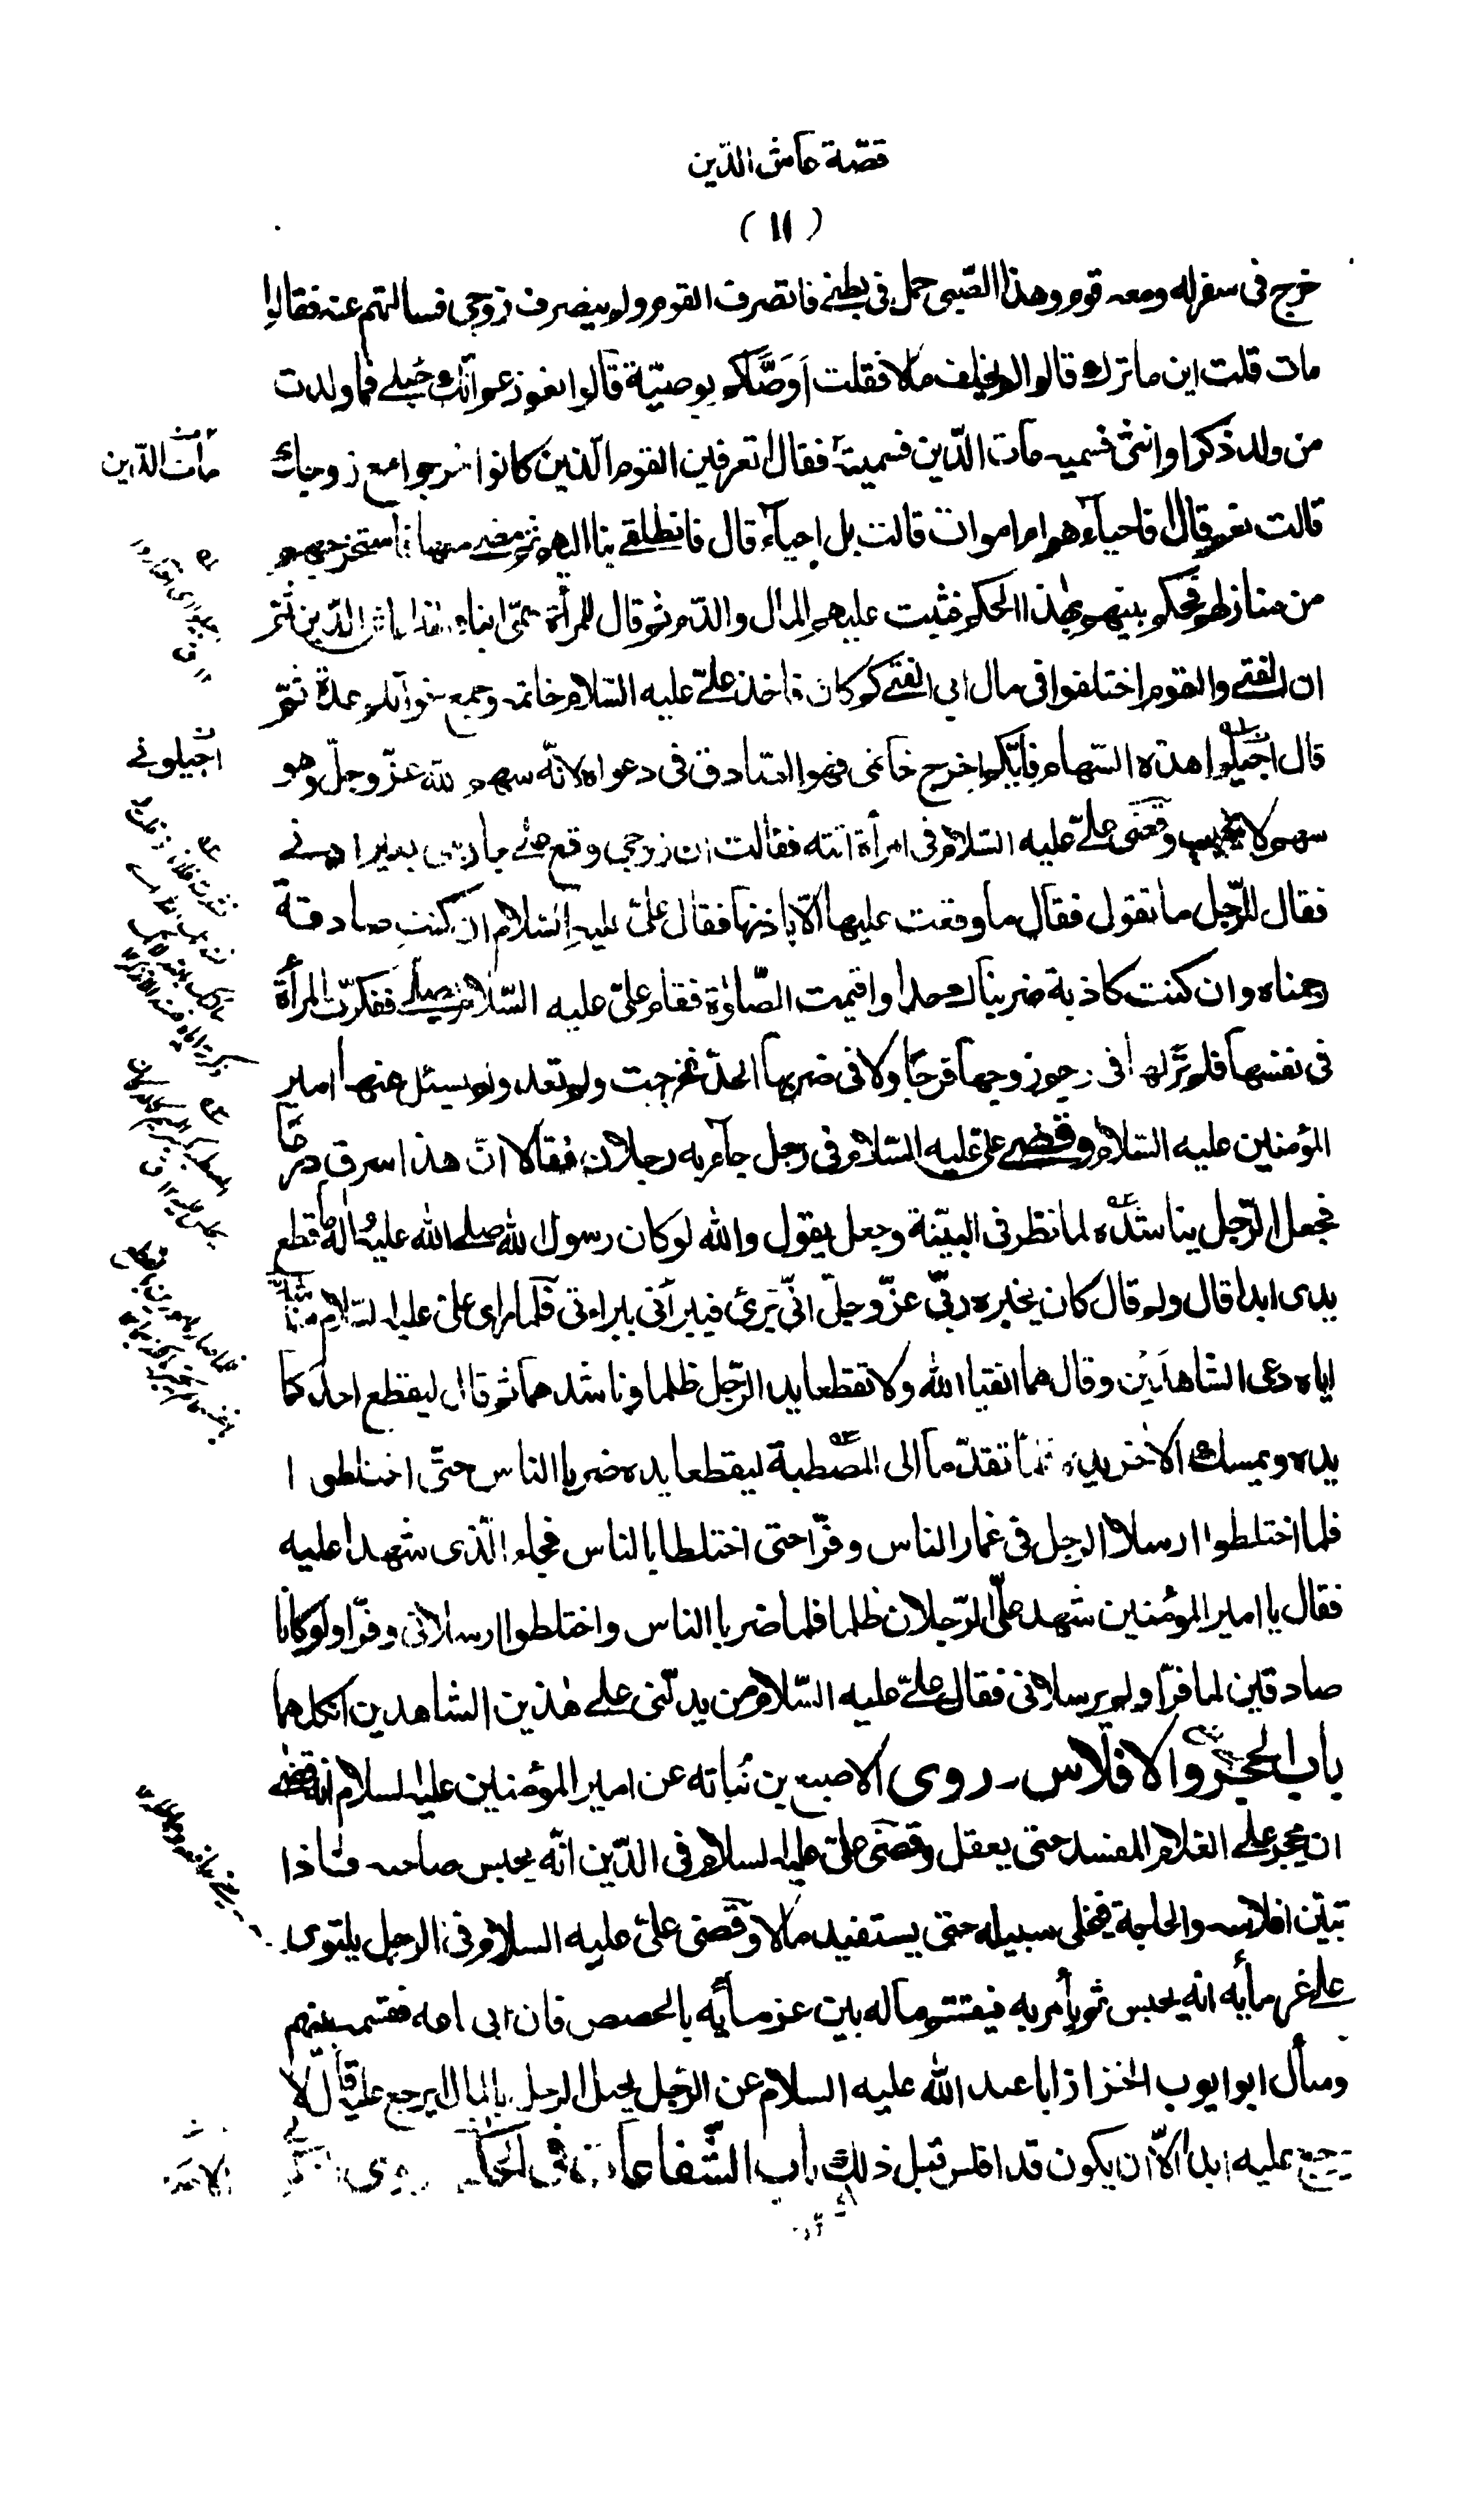 قصّة عاش الدّين
(١١)
خرج فى سفر له ومعه قوم وهذا الصّبى حمل فى بطنے فانصرف القوم ولم ينصرف زوجى فسالتهم عنه فقالوا
مات قلت اين ما ترك قالوا لم يخلف مالا فقلت اَوَصَّاكم بوصيّة قالوا نعم زعم انّك حبلے فما ولدت
من ولد ذكر او انثى فسميه مات الدّين فسميته فقال اتعرفين القوم الّذين كانوا خرجوا مع زوجك
مات الدّين
قالت نعم قال فاحياء هم ام اموات قالت بل احياء قال فانطلقے بنا اليهم ثم مضے معها فاستخرجهم
من منازلهم فحكم بينهم بهذا الحكم فثبت عليهم المال والدّم ثم قال للمرأة سمّى ابنك هذا عاش الدّين ثمّ
ان الفتے والقوم اختلفوا فى مال ابى الفتے كم كان فاخذ علىّ عليه السّلام خاتمه وجمع خواتيم عدة ثمّ
قال اجيلوا هذه السّهام فايّكم اخرج خاتمى فهو الصّادق فى دعواه لانّه سهم لله عزّ وجلّ وهو
اجيلونے
سهم لا يخيب وقضى علىّ عليه السّلام فى امرأة اتته فقالت ان زوجى وقع على جاريتى بغير اذنے
فقال للرّجل ما تقول فقال ما وقعت عليها الّا باذنها فقال علىّ عليه السّلام ان كنت صادقة
رجمناه وان كنت كاذبة ضربناك حدا واقيمت الصّلوٰة فقام علىّ عليه السّلام يصلے ففكرت المرأة
فى نفسها فلم تر لها فى رجم زوجها فرجًا ولا فى ضربها الحدّ فخرجت ولم تعد ولم يسئل عنها امير
المؤمنين عليه السّلام وقضے علىّ عليه السّلام فى رجل جاء به رجلان فقالا انّ هذا سرق درعًا
فجعل الرّجل يناشده لما نظر فى البيّنة وجعل يقول والله لو كان رسول الله صلى الله عليه وآله ما قطع
يدى ابدا قال ولم قال كان يخبره ربّى عزّ وجلّ انّى برئ فيبرأنى ببراءتى فلما راى علىّ عليه السّلام مناشدته
اياه دعى الشاهدين وقال لهما اتقيا الله ولا تقطعا يد الرّجل ظلما وناشدهما ثم قال ليقطع احدكما
يده ويمسك الآخر يده فلما تقدّما الى المصطبة ليقطعا يده ضربا الناس حتّى اختلطوا
فلما اختلطوا ارسلا الرجل فى غمار الناس وفرّا حتى اختلطا بالناس فجاء الّذى شهدا عليه
فقال يا امير المؤمنين شهد علىّ الرّجلان ظلما فلما ضربا الناس واختلطوا ارسلانى وفرّا ولو كانا
صادقين لما فرّا ولم يرسلانى فقال علىّ عليه السّلام من يدلّنى على هذين الشاهدين انكلهما
باب الحجر والافلاس - روى الاصبغ بن نباته عن امير المؤمنين عليه السلام انه قضى
ان يحجر على الغلام المفسد حتى يعقل وقضى علىّ عليه السلام فى الدّين انّه يحبس صاحبه فاذا
تبيّن افلاسه والحاجة فيخلى سبيله حتى يستفيد مالا وقضى علىّ عليه السلام فى الرجل يلتوى
على غرمائه انه يحبس ثم يأمر به فيقسم ماله بين غرمائه بالحصص فان ابى باعه فقسمه بينهم
وسأل ابو ايوب الخزاز ابا عبد الله عليه السلام عن الرّجل يحيل الرجل بالمال ايرجع عليه قال لا
يرجع عليه ابدا الّا ان يكون قد افلس قبل ذلك باب الشّفاعات فى الاحكام روى